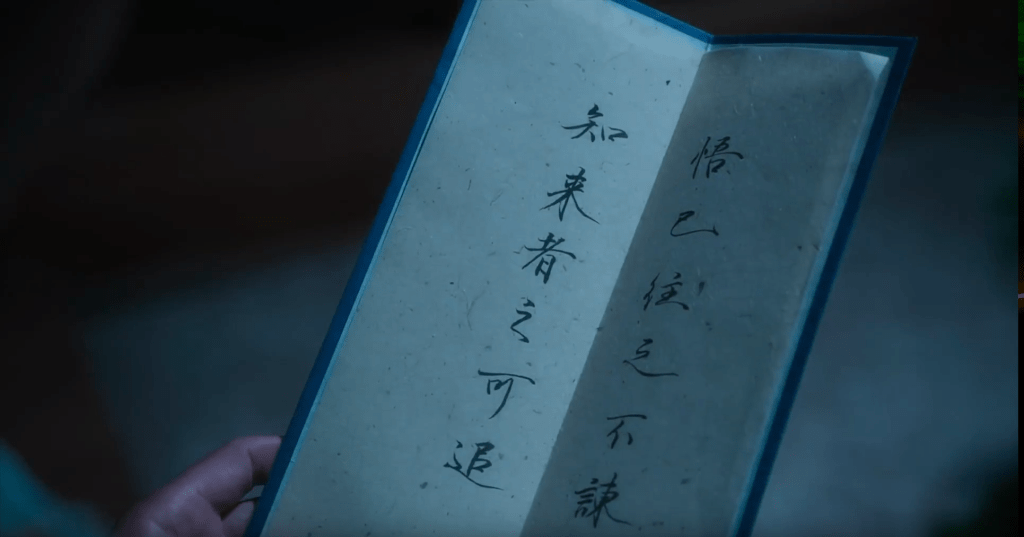 悟已往之不諫
知来者之可追